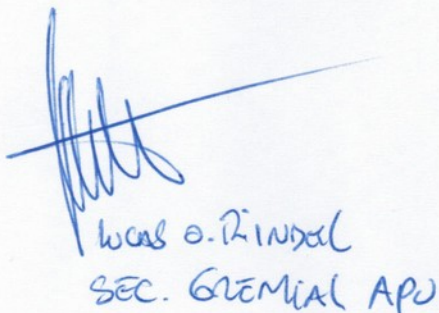 LUCAS O. RINDEL
SEC. GREMIAL APU